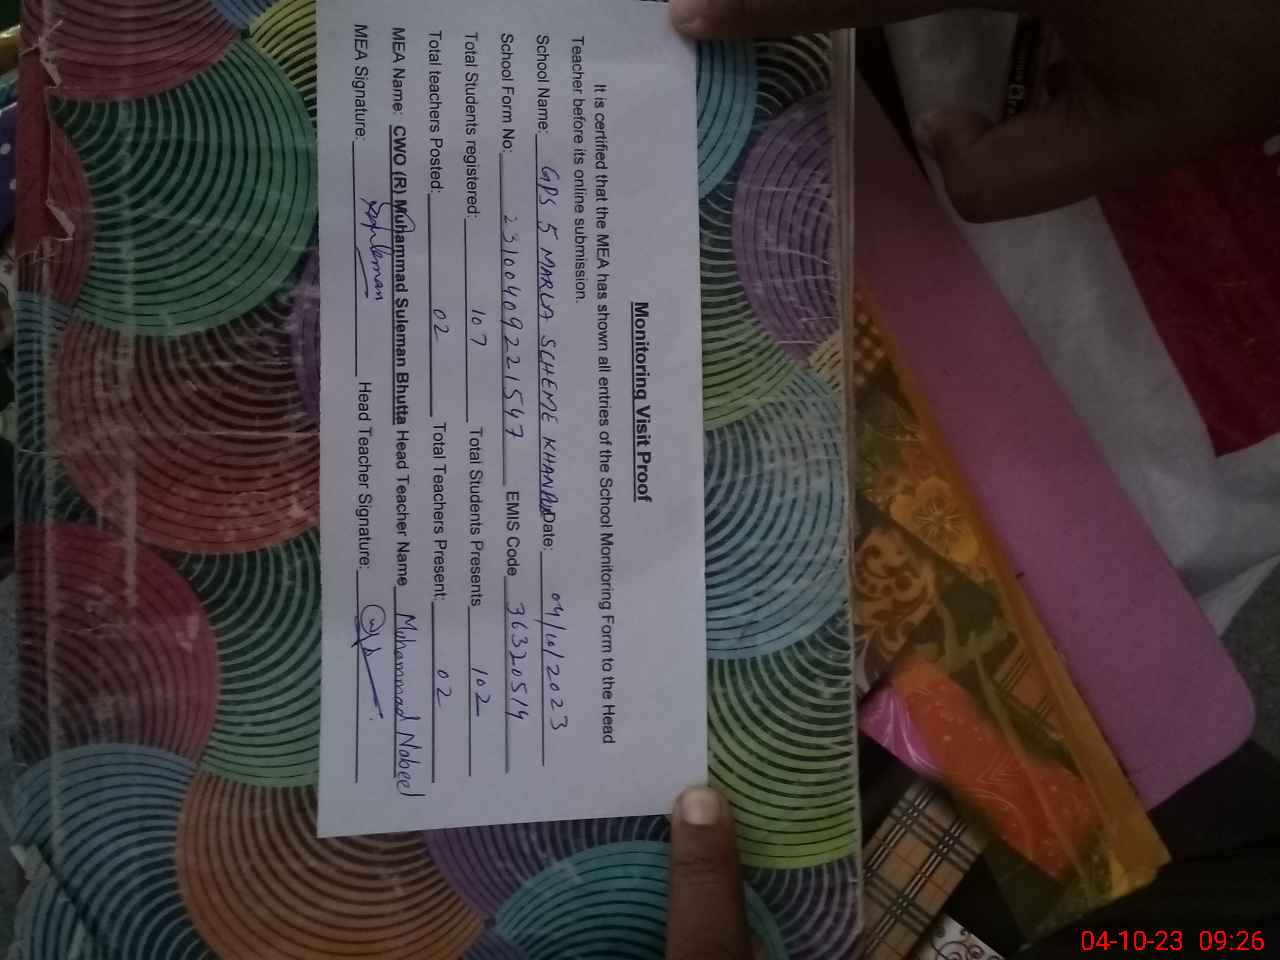 Monitoring Visit Proof
It is certified that the MEA has shown all entries of the School Monitoring Form to the Head
Teacher before its online submission.
School Name: GPS 5 MARLA SCHEME KHANPUR Date: 04/10/2023
School Form No: 23100409221547 EMIS Code 36320514
Total Students registered: 107 Total Students Presents 102
Total teachers Posted: 02 Total Teachers Present: 02
MEA Name: CWO (R) Muhammad Suleman Bhutta Head Teacher Name Muhammad Nabeel
MEA Signature: Head Teacher Signature:
04-10-23 09:26